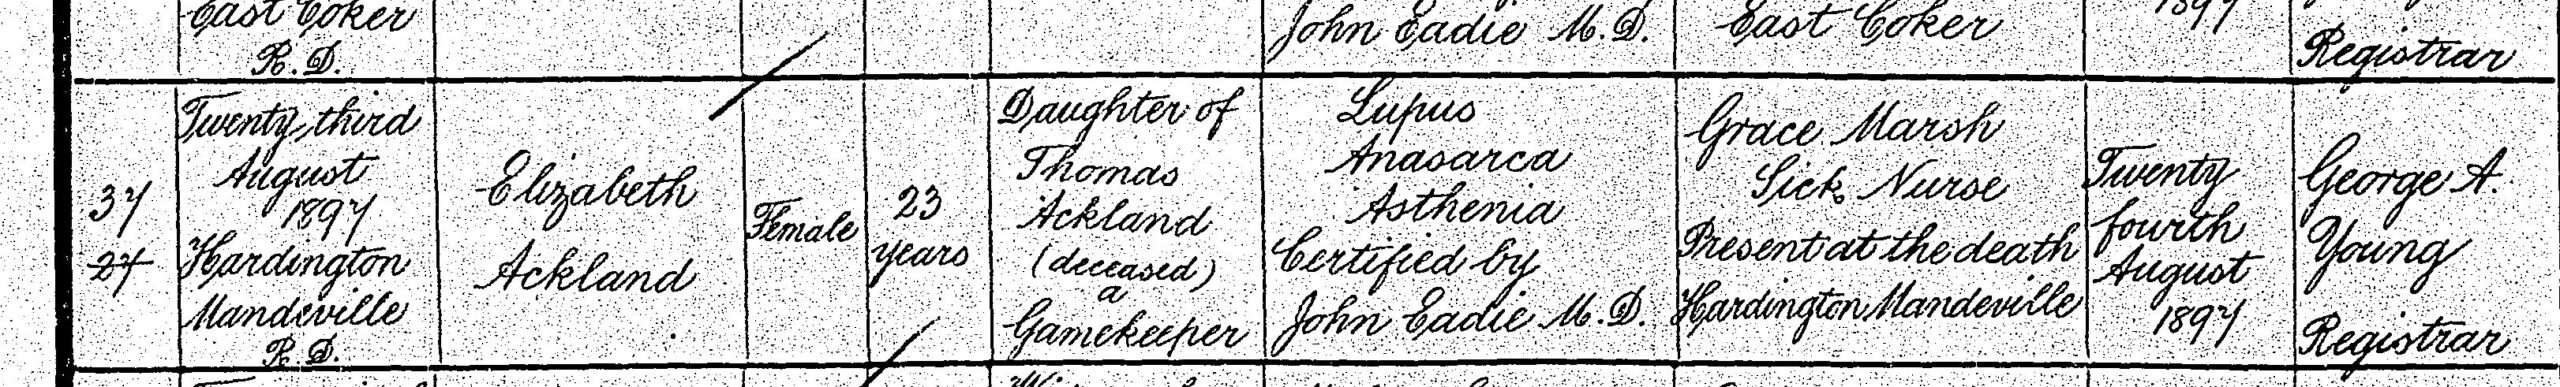 East Coker
R.D.
John Eadie M.D.
East Coker
1897
Registrar
37
27
Twenty third
August
1897
Hardington
Mandeville
R.D.
Elizabeth
Ackland
Female
23
years
Daughter of
Thomas
Ackland
(deceased)
a
Gamekeeper
Lupus
Anasarca
Asthenia
Certified by
John Eadie M.D.
Grace Marsh
Sick Nurse
Present at the death
Hardington Mandeville
Twenty
fourth
August
1897
George A.
Young
Registrar